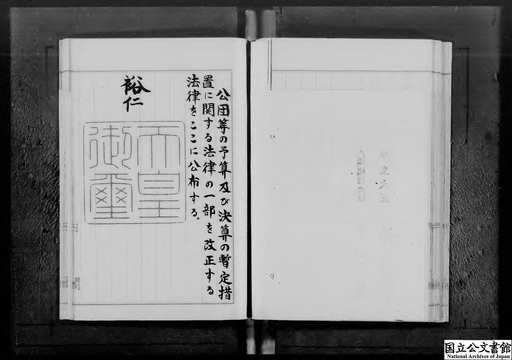 公団等の予算及び決算の暫定措
置に関する法律の一部を改正する
法律をここに公布する。
裕仁
天皇
御璽
国立公文書館
National Archives of Japan